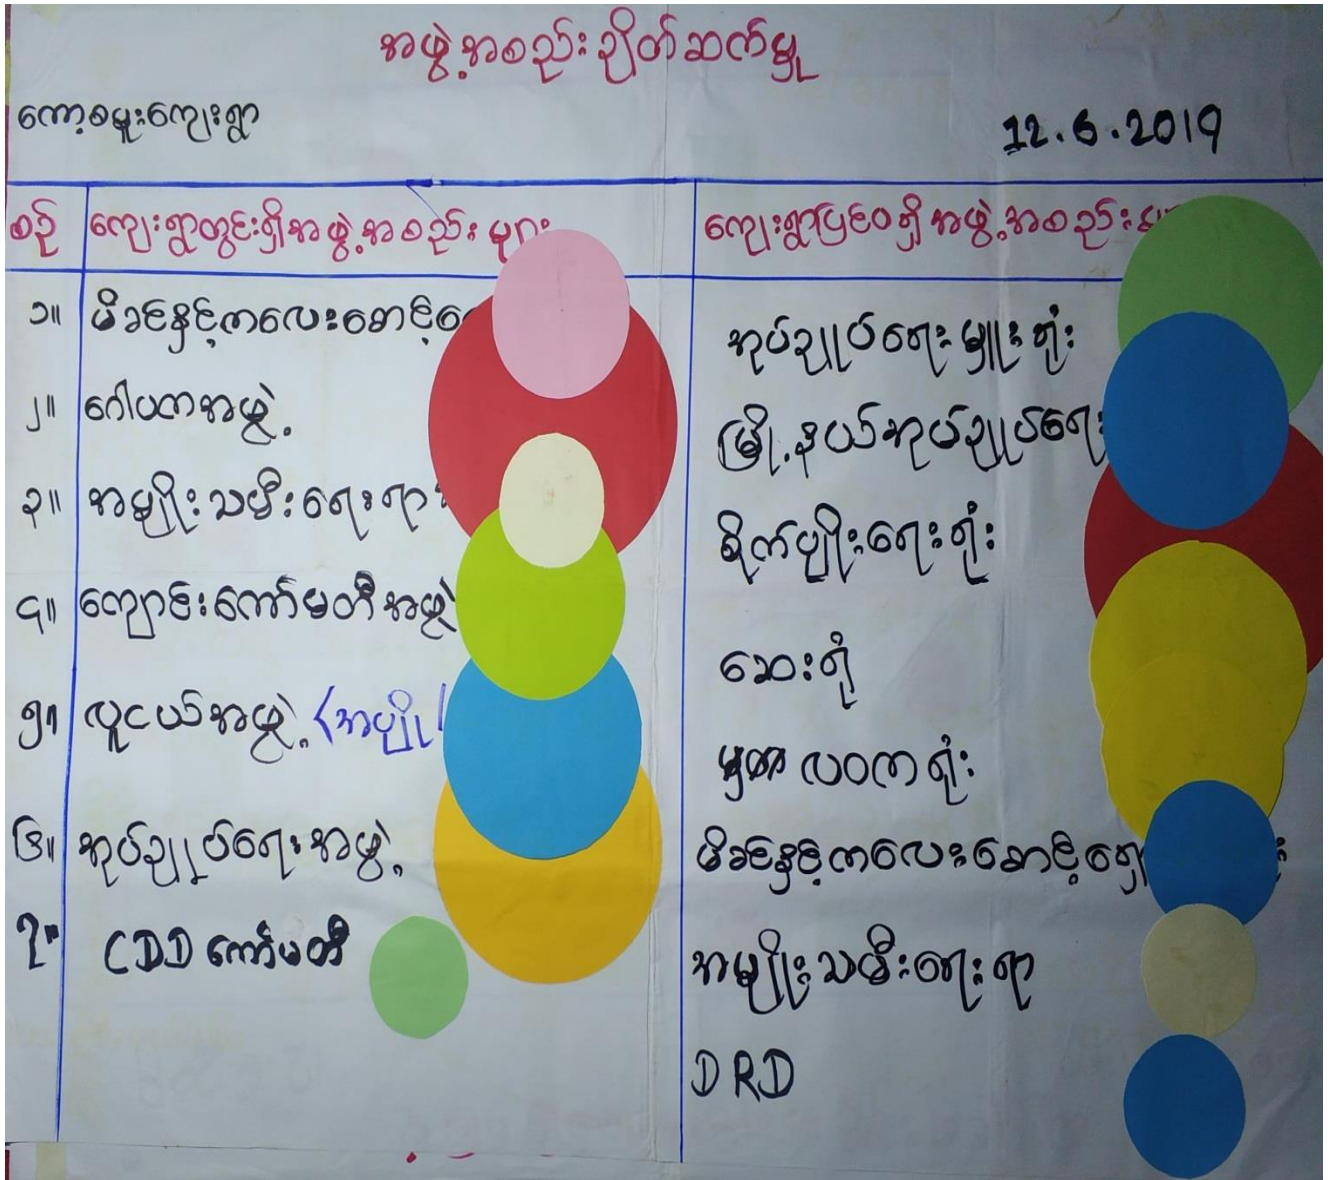 အဖွဲ့အစည်းချိတ်ဆက်မှု
ကော့စမူးကျေးရွာ
12.6.2019
စဉ် ကျေးရွာတွင်းရှိအဖွဲ့အစည်းများ ကျေးရွာပြင်ပရှိအဖွဲ့အစည်း
၁။ မိခင်နှင့်ကလေးစောင့် အုပ်ချုပ်ရေးမှူးရုံး
၂။ ဂေါပကအဖွဲ့ မြို့နယ်အုပ်ချုပ်ရေး
၃။ အမျိုးသမီးရေးရာ စိုက်ပျိုးရေးရုံး
၄။ ကျောင်းကော်မတီအဖွဲ့ ဆေးရုံ
၅။ လူငယ်အဖွဲ့ (အပျို/ လဝကရုံး
၆။ အုပ်ချုပ်ရေးအဖွဲ့ မိခင်နှင့်ကလေးစောင့်ရှော
၇။ CDD ကော်မတီ အမျိုးသမီးရေးရာ
DRD